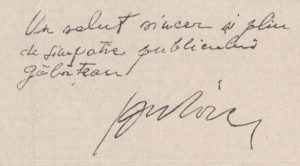 Un salut sincer și plin
de simpatie publicului
gălățean